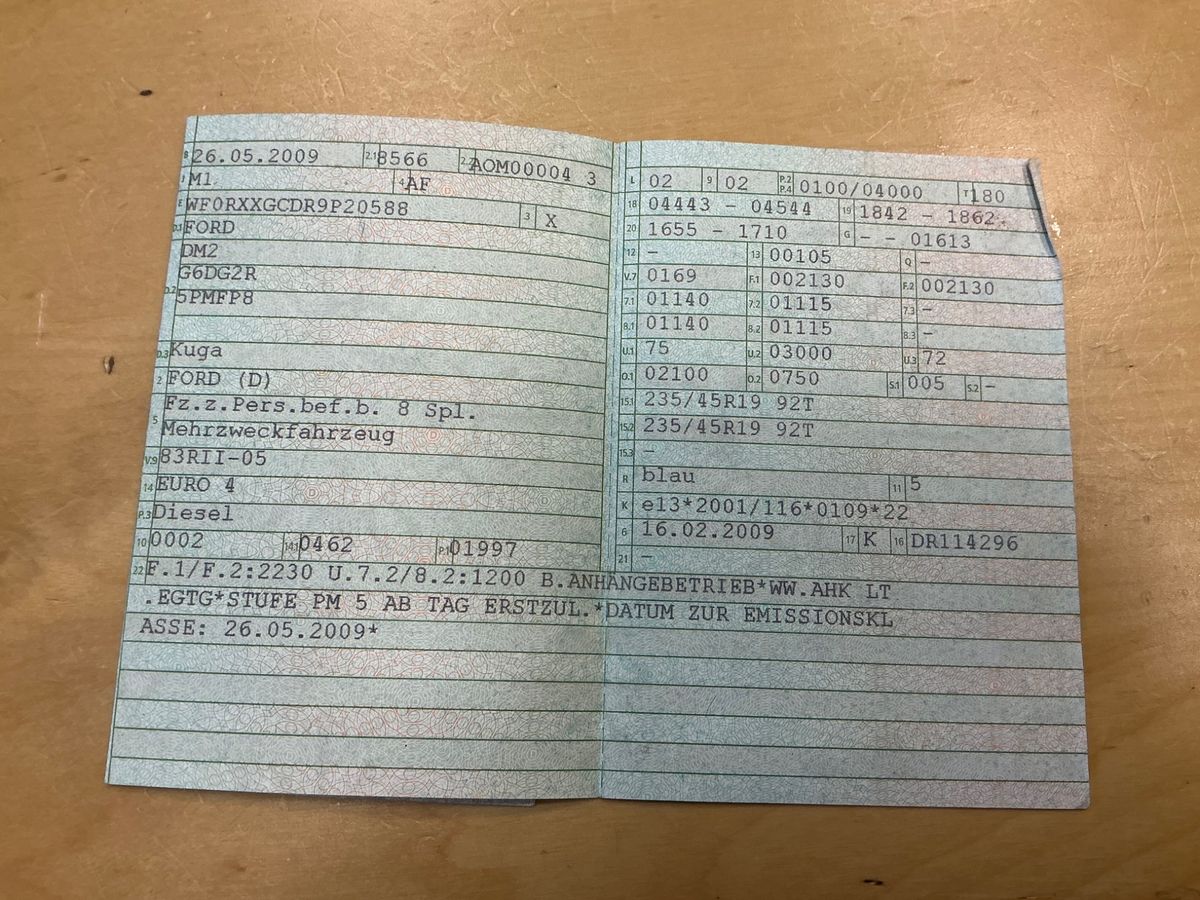 B 26.05.2009 2.1 8566 2.2 AOM00004 3
J M1 4 AF
E WF0RXXGCDR9P20588 3 X
D.1 FORD
DM2
D.2 G6DG2R
5PMFP8
D.3 Kuga
2 FORD (D)
5 Fz.z.Pers.bef.b. 8 Spl.
Mehrzweckfahrzeug
V.9 83RII-05
14 EURO 4
P.3 Diesel
10 0002 14.1 0462 P.1 01997
L 02 9 02 P.2 P.4 0100/04000 T 180
18 04443 - 04544 19 1842 - 1862
20 1655 - 1710 G - - 01613
12 - 13 00105 Q -
V.7 0169 F.1 002130 F.2 002130
7.1 01140 7.2 01115 7.3 -
8.1 01140 8.2 01115 8.3 -
U.1 75 U.2 03000 U.3 72
O.1 02100 O.2 0750 S.1 005 S.2 -
15.1 235/45R19 92T
15.2 235/45R19 92T
15.3 -
R blau 11 5
K e13*2001/116*0109*22
6 16.02.2009 17 K 16 DR114296
21 -
22 F.1/F.2:2230 U.7.2/8.2:1200 B.ANHÄNGEBETRIEB*WW.AHK LT
.EGTG*STUFE PM 5 AB TAG ERSTZUL.*DATUM ZUR EMISSIONSKL
ASSE: 26.05.2009*